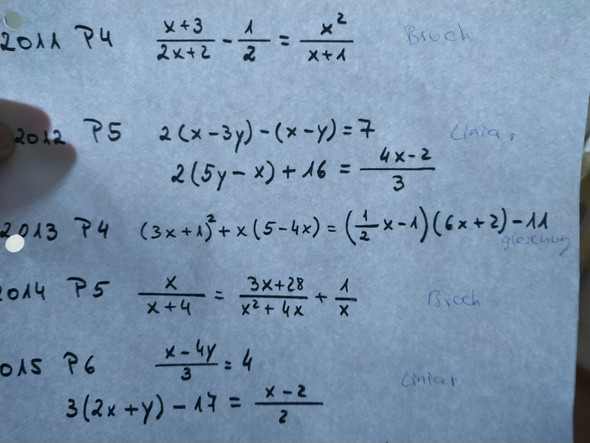 2011 P4 (x+3)/(2x+2) - 1/2 = x²/(x+1) Bruch
2012 P5 2(x-3y)-(x-y)=7 Liniar
2(5y-x)+16 = (4x-2)/3
2013 P4 (3x+1)²+x(5-4x)=(1/2 x-1)(6x+2)-11
gleichung
2014 P5 x/(x+4) = (3x+28)/(x²+4x) + 1/x Bruch
2015 P6 (x-4y)/3 = 4
Liniar
3(2x+y)-17 = (x-2)/2